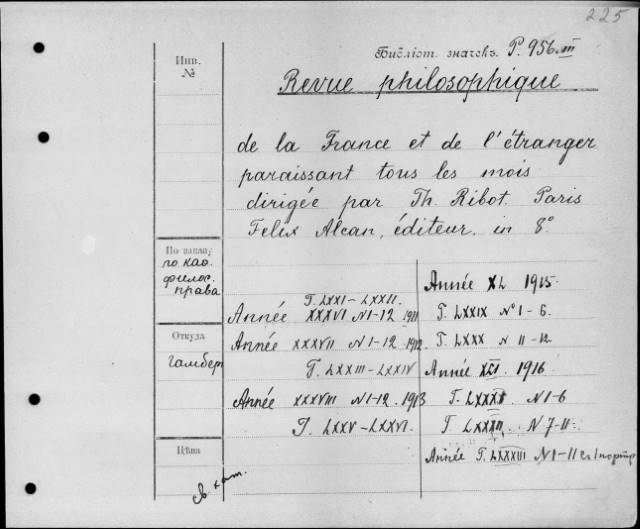 225
Библіот. значекъ P. 956 III
Инв.
№
Revue philosophique
de la France et de l'étranger
paraissant tous les mois
dirigée par Th. Ribot. Paris
Felix Alcan, éditeur. in 8°
По катал.
по каѳ.
филос.
права
Откуда
Гамбер
Цѣна
св. кат.
T. LXXI-LXXII.
Année XXXVI N 1-12 1911
Année XXXVII N 1-12 1912
T. LXXIII-LXXIV
Année XXXVIII N 1-12. 1913
T. LXXV-LXXVI.
Année XL 1915
T. LXXIX N° 1-6.
T. LXXX N 11-12
Année XLI. 1916
T. LXXXI N 1-6
T. LXXXII. N 7-11.
Année T. LXXXIII N 1-11 съ 1 портр